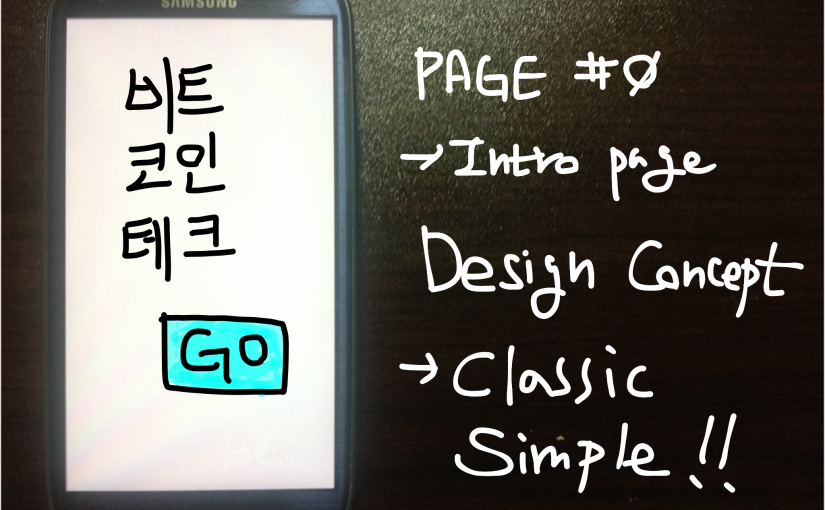 SAMSUNG
비트
코인
테크
Go
PAGE #0
→ Intro page
Design Concept
→ Classic
Simple!!